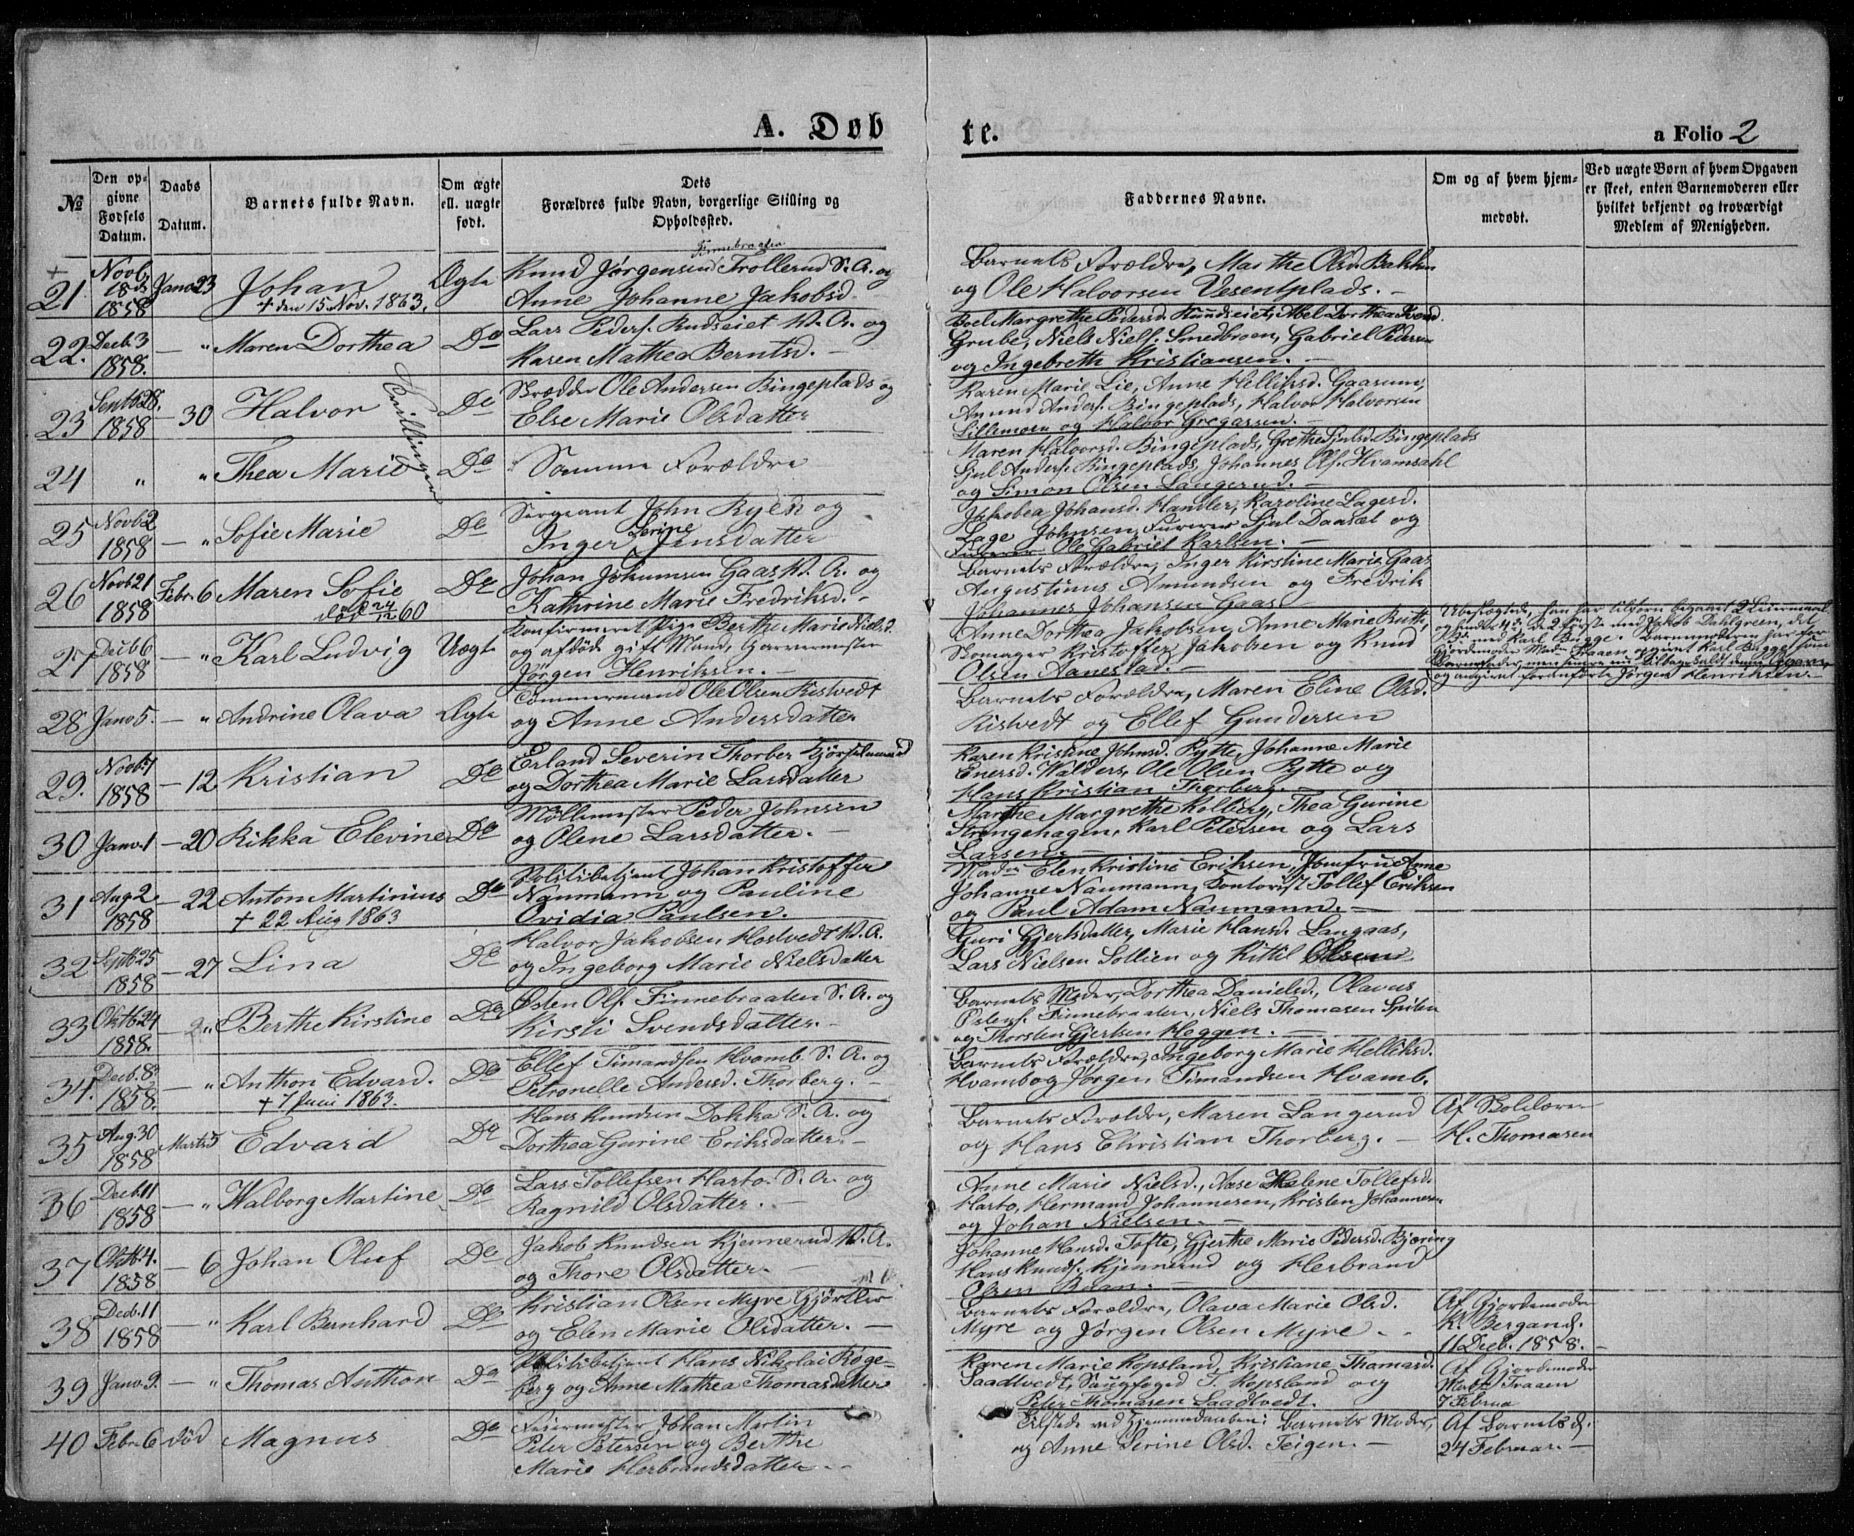 A. Døb
te.
a Folio 2
№
Den op-
givne
Fødsels
Datum.
Daabs
Datum.
Barnets fulde Navn.
Om ægte
ell. uægte
født.
Dets
Forældres fulde Navn, borgerlige Stilling og
Opholdssted.
Faddernes Navne.
Om og af hvem hjem-
medøbt.
Ved uægte Børn af hvem Opgaven
er skeet, enten Barnemoderen eller
hvilket bekjendt og troværdigt
Medlem af Menigheden.
+
21
Novb.
18de
1858
Janv 23
Johan
+ den 15 Nov. 1863.
Ægte
Finnebraaten
Knud Jørgensen Trollerud S. A. og
Anne Johanne Jakobsd.
Barnets Forældre, Marthe Olsd. Bakken
og Ole Halvorsen Vesentplads. –
22.
Decb. 3
1858.
— "
Maren Dorthea
Do
Lars Peders. Rudseiet N. A. og
Karen Mathea Berntsd. –
Boel Margrethe Pedersd. Hundseiet, Abel Dorthea
Grube, Niels Niels. Smedbroen, Gabriel Pedersen
og Ingebreth Kristiansen. –
23
Septb. 28.
1858
— 30
Halvor
Tvillinger
Do
Skrædder Ole Andersen Bingeplads og
Else Marie Olsdatter
Karen Marie Lie, Anne Helliksd. Gaasum,
Amund Anders. Bingeplads, Halvor Halvorsen
Lillemoen og Halvor Gregersen. –
24
"
"
Thea Marie
Do
Samme Forældre
Maren Halvorsd. Bingeplads, Grethe Bingeplads
Anders. Bingeplads, Johannes Ols. Hvamsahl
og Simon Olsen Langerud. –
25
Novb 2
1858
— "
Sofie Marie
Do
Sergeant John Ryen og
Inger Serine Jensdatter
Jakobea Johansd. Handler, Karoline Lagesd.
Lage Johnsen, Furerer Daasæl og
Furerer Ole Gabriel Karlsen. –
26
Novb 21
1858
Febr. 6
Maren Sofie
død 24/12 60
Do
Johan Johannsen Gaas N. A. og
Kathrine Marie Fredriksd. –
Barnets Forældre, Inger Kirstine Marie Gaas,
Augustinus Amundsen og Fredrik
Johannes Johansen Gaas
27
Decb 6
1858
— "
Karl Ludvig
Uægte
Konfirmeret Pige Berthe Marie Nielsd.
og afdøde gift Mand, Garvermester
Jørgen Henriksen. –
Anne Dorthea Jakobsen, Anne Marie Berthe,
Skomager Kristoffer Jakobsen og Knud
Olsen Aanestad. –
Ubeslægtede, hun har tilforn begaaet 2 Leiermaal
og han 4, de 2 første med Jakob Dahlgreen, det
3die med Karl Bugge. Barnemoderen har for
Gjordemoder Mad. Fraaen opgivet Karl Bugge som
og angivet foranførte Jørgen Henriksen. –
28
Janv 5.
— "
Andrine Olava
Ægte
Tømmermand Ole Olsen Ristvedt
og Anne Andersdatter
Barnets Forældre, Maren Eline Olsd.
Ristvedt og Ellef Gundersen
29.
Novb 7
1858
— 12
Kristian
Do
Erland Severin Thorberg
og Dorthea Marie Larsdatter
Karen Kristine Johnsd. Pytte, Johanne Marie
Enersd. Walders, Ole Olsen Pytte og
Hans Kristian Thorberg. –
30
Janv. 1
— 20
Rikka Elevine
Do
Møllemester Peder Johnsen
og Olene Larsdatter. –
Marthe Margrethe Kolberg, Thea Gurine
Strengehagen, Karl Petersen og Lars
Larsen. –
31
Aug. 2
1858
— 22
Anton Martinius
+ 22 Aug 1863
Do
Politibetjent Johan Kristoffer
Naumann og Pauline
Ovidia Paulsen.
Madm Elen Kristine Eriksen, Jomfru Anne
Johanne Naumann, Kontorist Tollef Eriksen
og Paul Adam Naumann. –
32
Septb 25
1858
— 27
Lina
Do
Halvor Jakobsen Hostvedt N. A.
og Ingeborg Marie Nielsdatter
Guri Gjertsdatter, Marie Hansd. Langaas,
Lars Nielsen Sollien og Kittil Olsen
33
Oktb 24
1858.
"
Berthe Kirstine
Do
Østen Ols. Finnebraaten S. A. og
Kirsti Svendsdatter. –
Barnets Moder, Dorthea Danielsd., Olavus
Østens. Finnebraaten, Niels Thomasen Spiten
og Thorsten Gjertsen Hoggen. –
34.
Decb. 8
1858.
— "
Anthon Edvard.
+ 7 Juni 1863.
Do
Ellef Timandsen Hvamb. S. A. og
Petronelle Andersd. Thorberg. –
Barnets Forældre, Ingeborg Marie Helliksd.
Hvamb og Jørgen Timandsen Hvamb.
35
Aug. 30
1858
Marts 5
Edvard
Do
Hans Knudsen Dokka S. A. og
Dorthea Gurine Eriksdatter. –
Barnets Forældre, Maren Langerud
og Hans Christian Thorberg. –
Af Skolelærer
H. Thomasen
36
Decb. 11
1858
— "
Walborg Martine
Do
Lars Tollefsen Harto. S. A. og
Ragnild Olsdatter. –
Anne Marie Nielsd., Aase Helene Tollefsd.
Harto, Hermand Johannesen, Kristen Johannesen
og Johan Nielsen. –
37
Oktb 4.
1858
— 6
Johan Oluf
Do
Jakob Knudsen Kjennerud N. A.
og Thore Olsdatter. –
Johanne Hansd. Tofte, Gjerthe Marie Pedersd. Bjøring
Hans Knuds. Kjennerud og Herbrand
Olsen Baan. –
38
Decb. 11
1858
— "
Karl Bernhard
Do
Kristian Olsen Myre Gjørtler
og Elen Marie Olsdatter. –
Barnets Forældre, Olava Marie Olsd.
Myre og Jørgen Olsen Myre. –
Af Gjordemoder
K. Bergan d.
11 Decb. 1858. –
39
Janv. 9.
— "
Thomas Anthon
Do
Politibetjent Hans Nikolai Røge-
berg og Anne Mathea Thomasdatter
Karen Marie Kopsland, Kristiane Thomasd.
Saadtvedt, Saugfoged T. Kopsland og
Peter Thomasen Saadtvedt.
Af Gjordemoder
Mad. Fraaen
7 Februar
40
Febr. 6
død
Magnus
Do
Feiermester Johan Martin
Peter Petersen og Berthe
Marie Herbrandsdatter. –
Tilstede ved Hjemmedaaben: Barnets Moder,
og Anne Serine Olsd. Teigen. –
Af Barnets
24 Februar. –